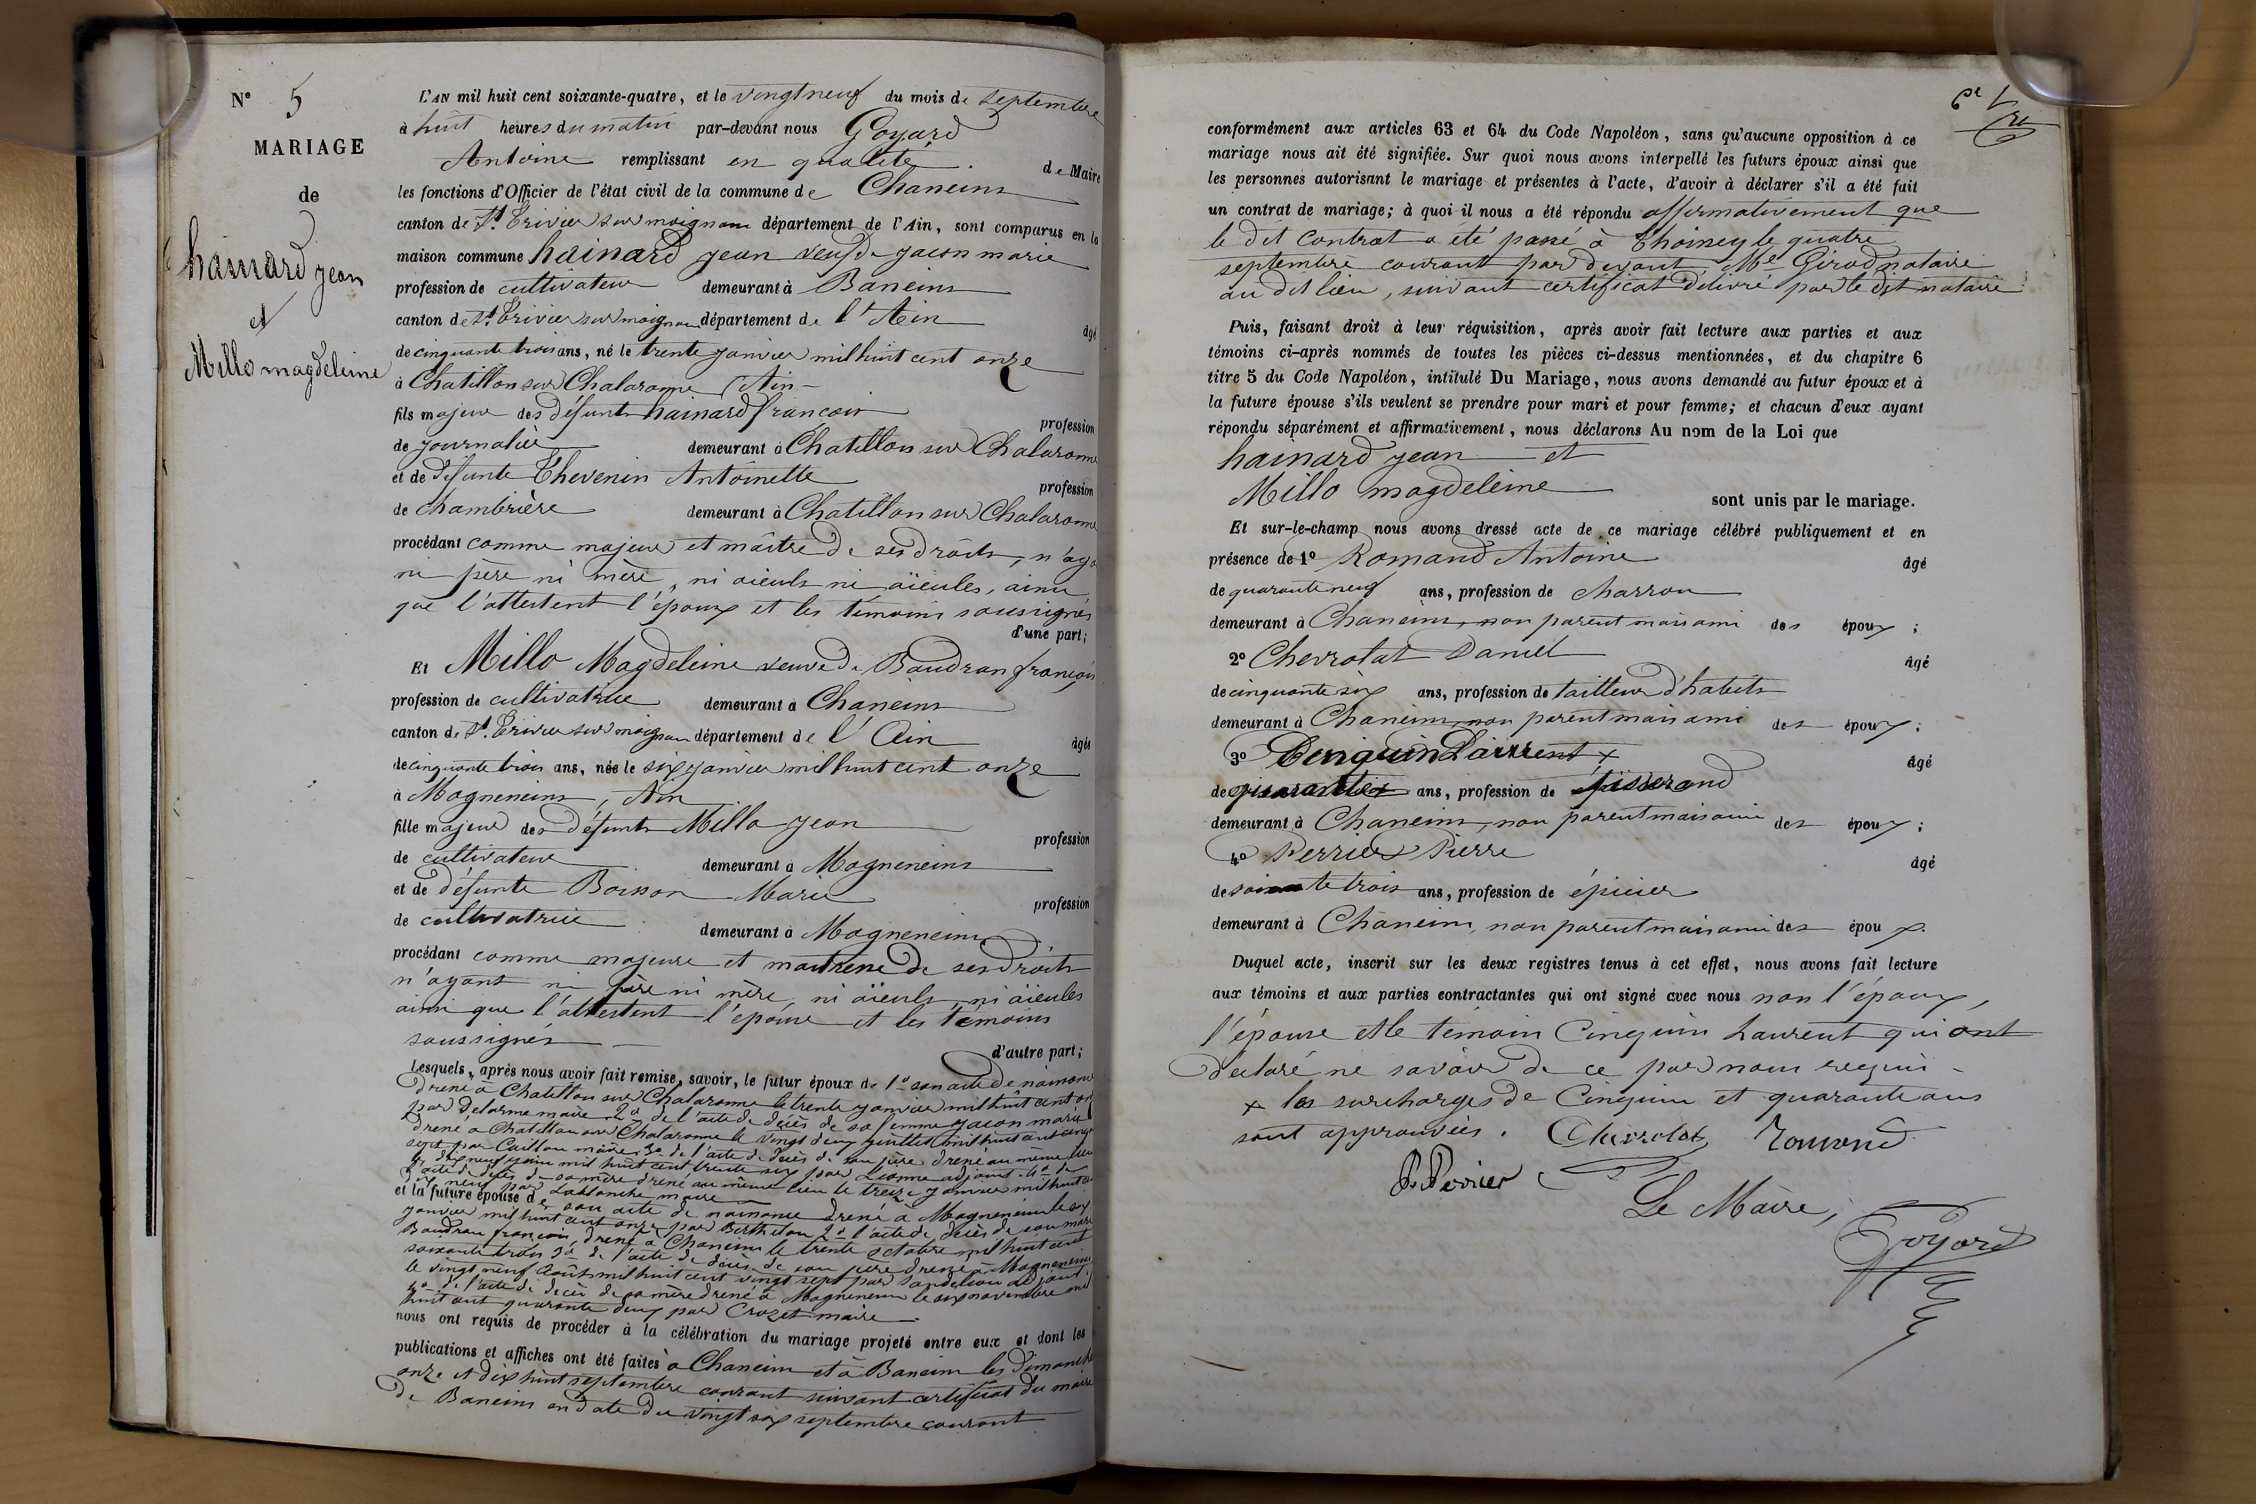 N° 5
MARIAGE
de
hainard jean
et
Millo magdeleine
L'AN mil huit cent soixante-quatre, et le vingt neuf du mois de septembre
à huit heures du matin par-devant nous Goyard
Antoine remplissant en qualité de Maire
les fonctions d'Officier de l'état civil de la commune de Chaneins
canton de St. Trivier sur moignans département de l'Ain, sont comparus en la
maison commune hainard jean veuf de jacon marie
profession de cultivateur demeurant à Baneins
canton de St. Trivier sur moignans département de l'Ain âgé
de cinquante trois ans, né le trente janvier mil huit cent onze
à Chatillon sur Chalaronne (Ain
fils majeur des défunts hainard françois profession
de journalier demeurant à Chatillon sur Chalaronne
et de défunte Thevenin Antoinette profession
de chambrière demeurant à Chatillon sur Chalaronne
procédant comme majeur et maître de ses droits, n'aya
ni père ni mère, ni aïeuls ni aïeules, ainsi
que l'attestent l'époux et les témoins soussignés
d'une part;
Et Millo Magdeleine veuve de Baudran françois
profession de cultivatrice demeurant à Chaneins
canton de St. Trivier sur moignans département de l'Ain âgée
de cinquante trois ans, née le six janvier mil huit cent onze
à Magneneins, Ain
fille majeur des défunts Millo jean profession
de cultivateur demeurant à Magneneins
et de défunte Boisson Marie profession
de cultivatrice demeurant à Magneneins
procédant comme majeure et maitresse de ses droits
n'ayant ni père ni mère, ni aïeuls, ni aïeules
ainsi que l'attestent l'épouse et les témoins
soussignés
d'autre part;
Lesquels, après nous avoir fait remise, savoir, le futur époux de 1° son acte de naissance
dressé à Chatillon sur Chalaronne le trente janvier mil huit cent on
par Delorme maire 2° de l'acte de décès de sa femme jacon marie
dressé à Chatillon sur Chalaronne le vingt deux juillet mil huit cent cinqu
sept par Caillou maire 3° de l'acte de décès de son père dressé au même lieu
le dix neuf juin mil huit cent trente six par adjoint 4° de
l'acte de décès de sa mère dressé au même lieu le treize janvier mil huit ce
neuf par Lablanche maire
et la future épouse de son acte de naissance dressé à Magneneins le six
janvier mil huit cent onze par Berthelon 2° l'acte de décès de son mari
Baudran françois, dressé à Chaneins le trente octobre mil huit cent
soixante trois 3° de l'acte de décès de son père dressé à Magneneins
le vingt neuf août mil huit cent vingt sept par adjoint
4° de l'acte de décès de sa mère dressé à Magneneins le six novembre mil
huit cent quarante deux par Crozet maire
nous ont requis de procéder à la célébration du mariage projeté entre eux et dont les
publications et affiches ont été faites à Chaneins et à Baneins les dimanche
onze et dix huit septembre courant suivant certificat du maire
de Baneins en date du vingt six septembre courant
conformément aux articles 63 et 64 du Code Napoléon, sans qu'aucune opposition à ce
mariage nous ait été signifiée. Sur quoi nous avons interpellé les futurs époux ainsi que
les personnes autorisant le mariage et présentes à l'acte, d'avoir à déclarer s'il a été fait
un contrat de mariage; à quoi il nous a été répondu affirmativement que
le dit contrat a été passé à Thoissey le quatre
septembre courant par devant Me Girod notaire
au dit lieu, suivant certificat délivré par le dit notaire
Puis, faisant droit à leur réquisition, après avoir fait lecture aux parties et aux
témoins ci-après nommés de toutes les pièces ci-dessus mentionnées, et du chapitre 6
titre 5 du Code Napoléon, intitulé Du Mariage, nous avons demandé au futur époux et à
la future épouse s'ils veulent se prendre pour mari et pour femme; et chacun d'eux ayant
répondu séparément et affirmativement, nous déclarons Au nom de la Loi que
hainard jean et
Millo magdeleine sont unis par le mariage.
Et sur-le-champ nous avons dressé acte de ce mariage célébré publiquement et en
présence de 1° Romand Antoine âgé
de quarante neuf ans, profession de charron
demeurant à Chaneins, non parent mais ami des époux;
2° Chevrolat Daniel âgé
de cinquante six ans, profession de tailleur d'habits
demeurant à Chaneins, non parent mais ami des époux;
3° Cinquin Laurent x âgé
de quarante x ans, profession de tisserand
demeurant à Chaneins, non parent mais ami des époux;
4° Perrier Pierre âgé
de soixante trois ans, profession de épicier
demeurant à Chaneins, non parent mais ami des époux.
Duquel acte, inscrit sur les deux registres tenus à cet effet, nous avons fait lecture
aux témoins et aux parties contractantes qui ont signé avec nous non l'époux,
l'épouse et le témoin Cinquin Laurent qui ont
déclaré ne savoir de ce par nous requis
x les surcharges de Cinquin et quarante ans
sont approuvées. Chevrolat Romand
P. Perrier
Le Maire,
Goyard